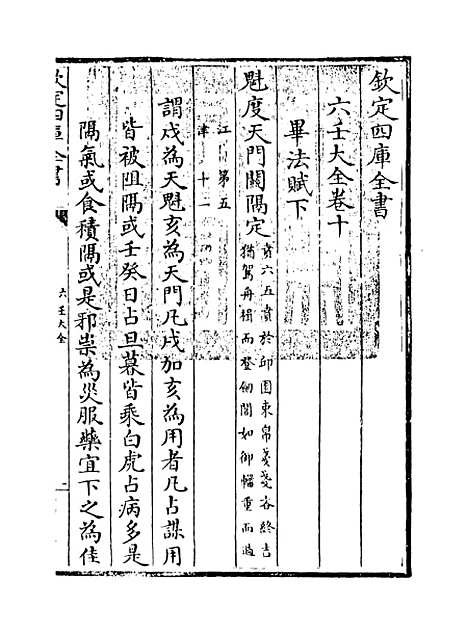 欽定四庫全書
六壬大全卷十
畢法賦下
魁度天門關隔定賁六五賁於邱園束帛戔戔吝終吉
猶駕舟楫而登 間如御 重而
江 第五
津 十一
謂戌為天魁亥為天門凡戌加亥為用者凡占謀用
皆被阻隔或壬癸日占旦暮皆乘白虎占病多是
隔氣或食積隔或是邪祟為災服藥宜下之為佳
欽定四庫全書
六壬大全